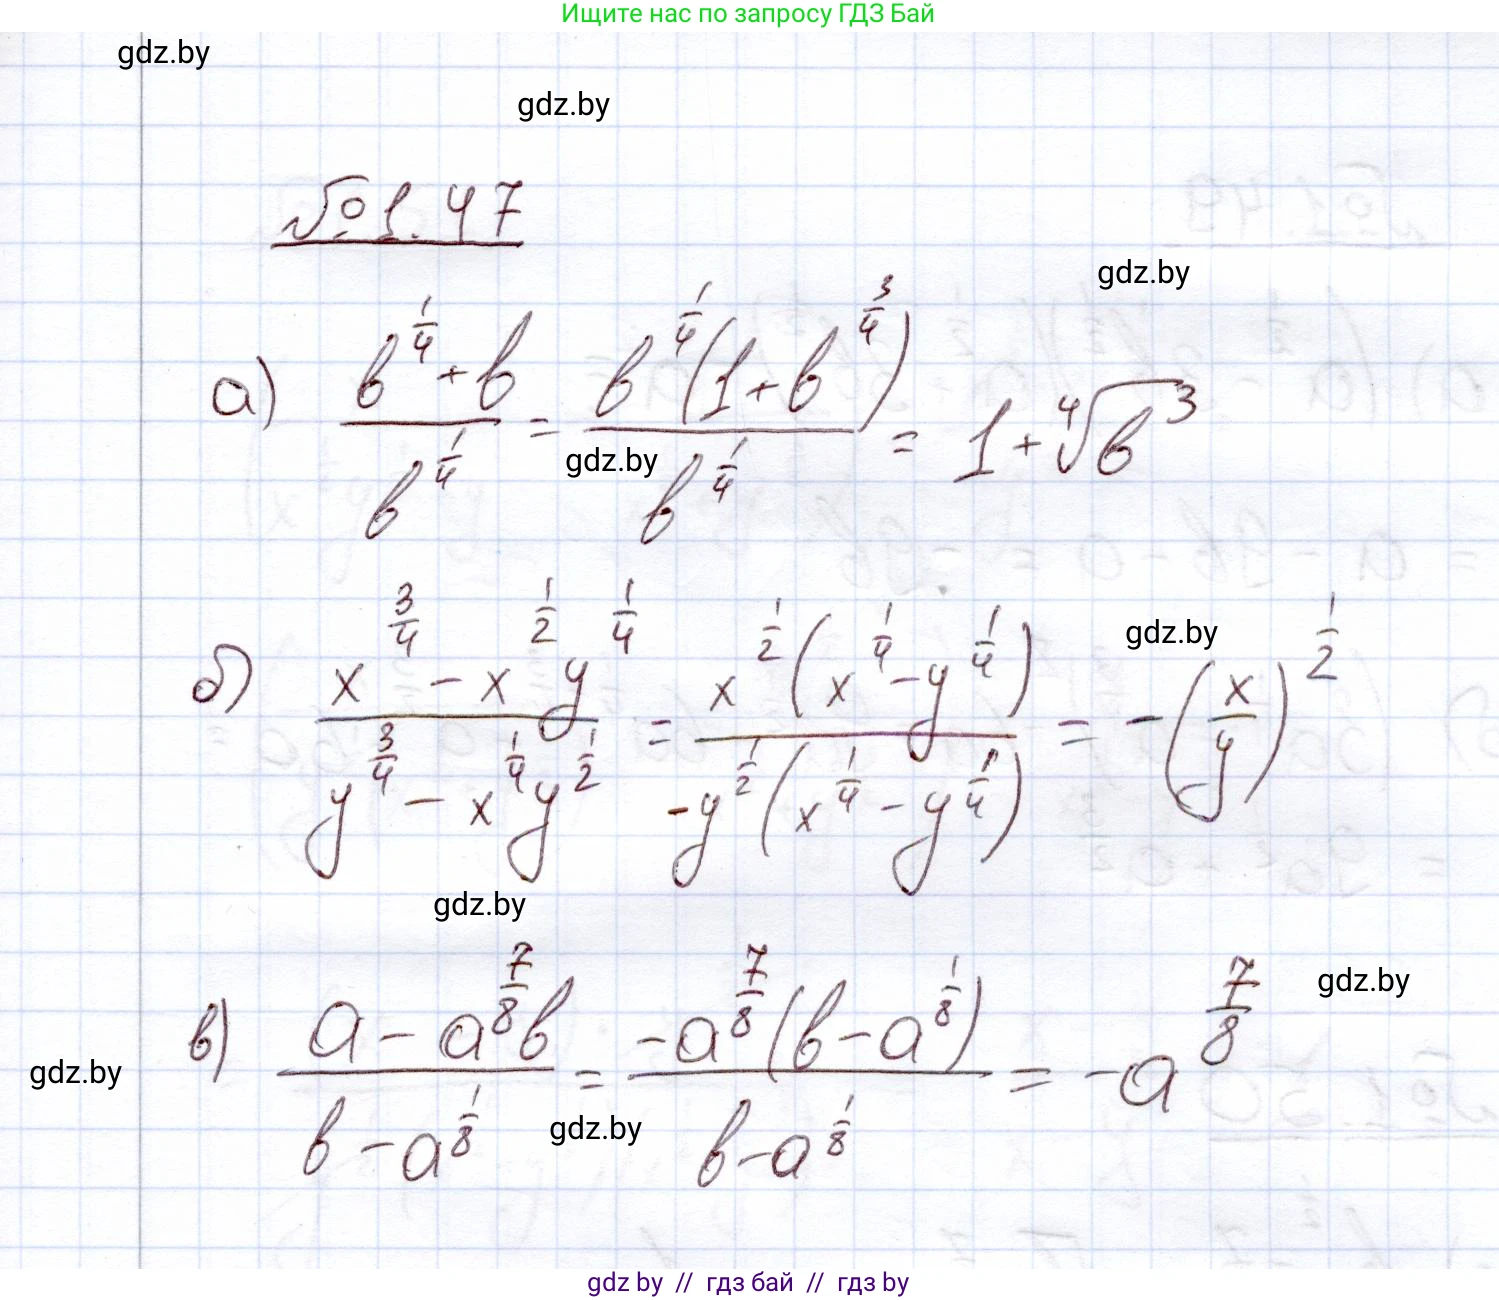 Ищите нас по запросу ГДЗ Бай
gdz.by
gdz.by
№1.47
gdz.by
а) (b^(1/4) + b)/b^(1/4) = b^(1/4)(1 + b^(3/4))/b^(1/4) = 1 + ⁴√b³
gdz.by
gdz.by
б) (x^(3/4) − x^(1/2) y^(1/4))/(y^(3/4) − x^(1/4) y^(1/2)) = x^(1/2)(x^(1/4) − y^(1/4))/(−y^(1/2)(x^(1/4) − y^(1/4))) = −(x/y)^(1/2)
gdz.by
gdz.by
в) (a − a^(7/8) b)/(b − a^(1/8)) = −a^(7/8)(b − a^(1/8))/(b − a^(1/8)) = −a^(7/8)
gdz.by
gdz.by
gdz by // гдз бай // гдз by